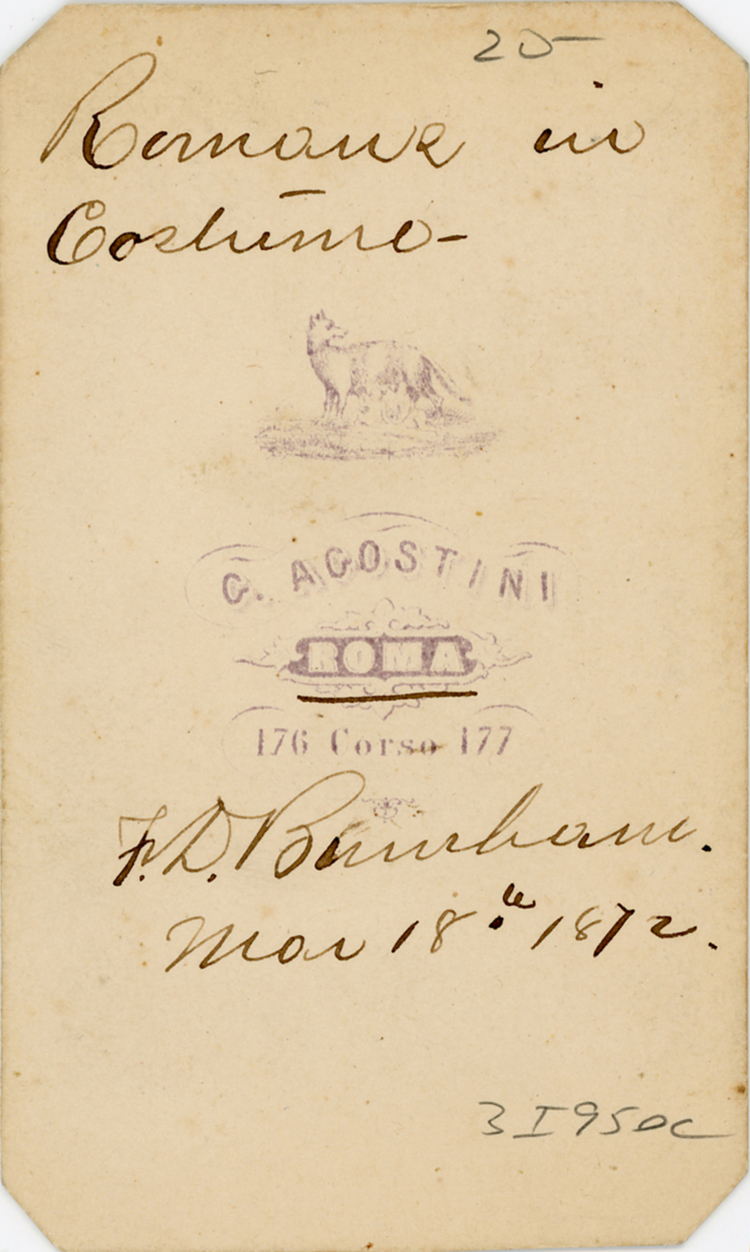 25
Romans in
Costume-
G. AGOSTINI
ROMA
176 Corso 177
F. D. Burnham.
Mar 18th 1872.
3I950c